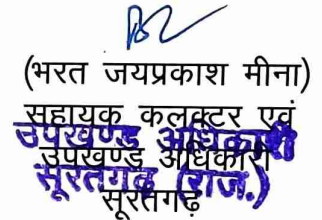 (भरत जयप्रकाश मीना)
सहायक कलक्टर एवं
उपखण्ड अधिकारी
उपखण्ड अधिकारी
सूरतगढ़ (राज.)
सूरतगढ़